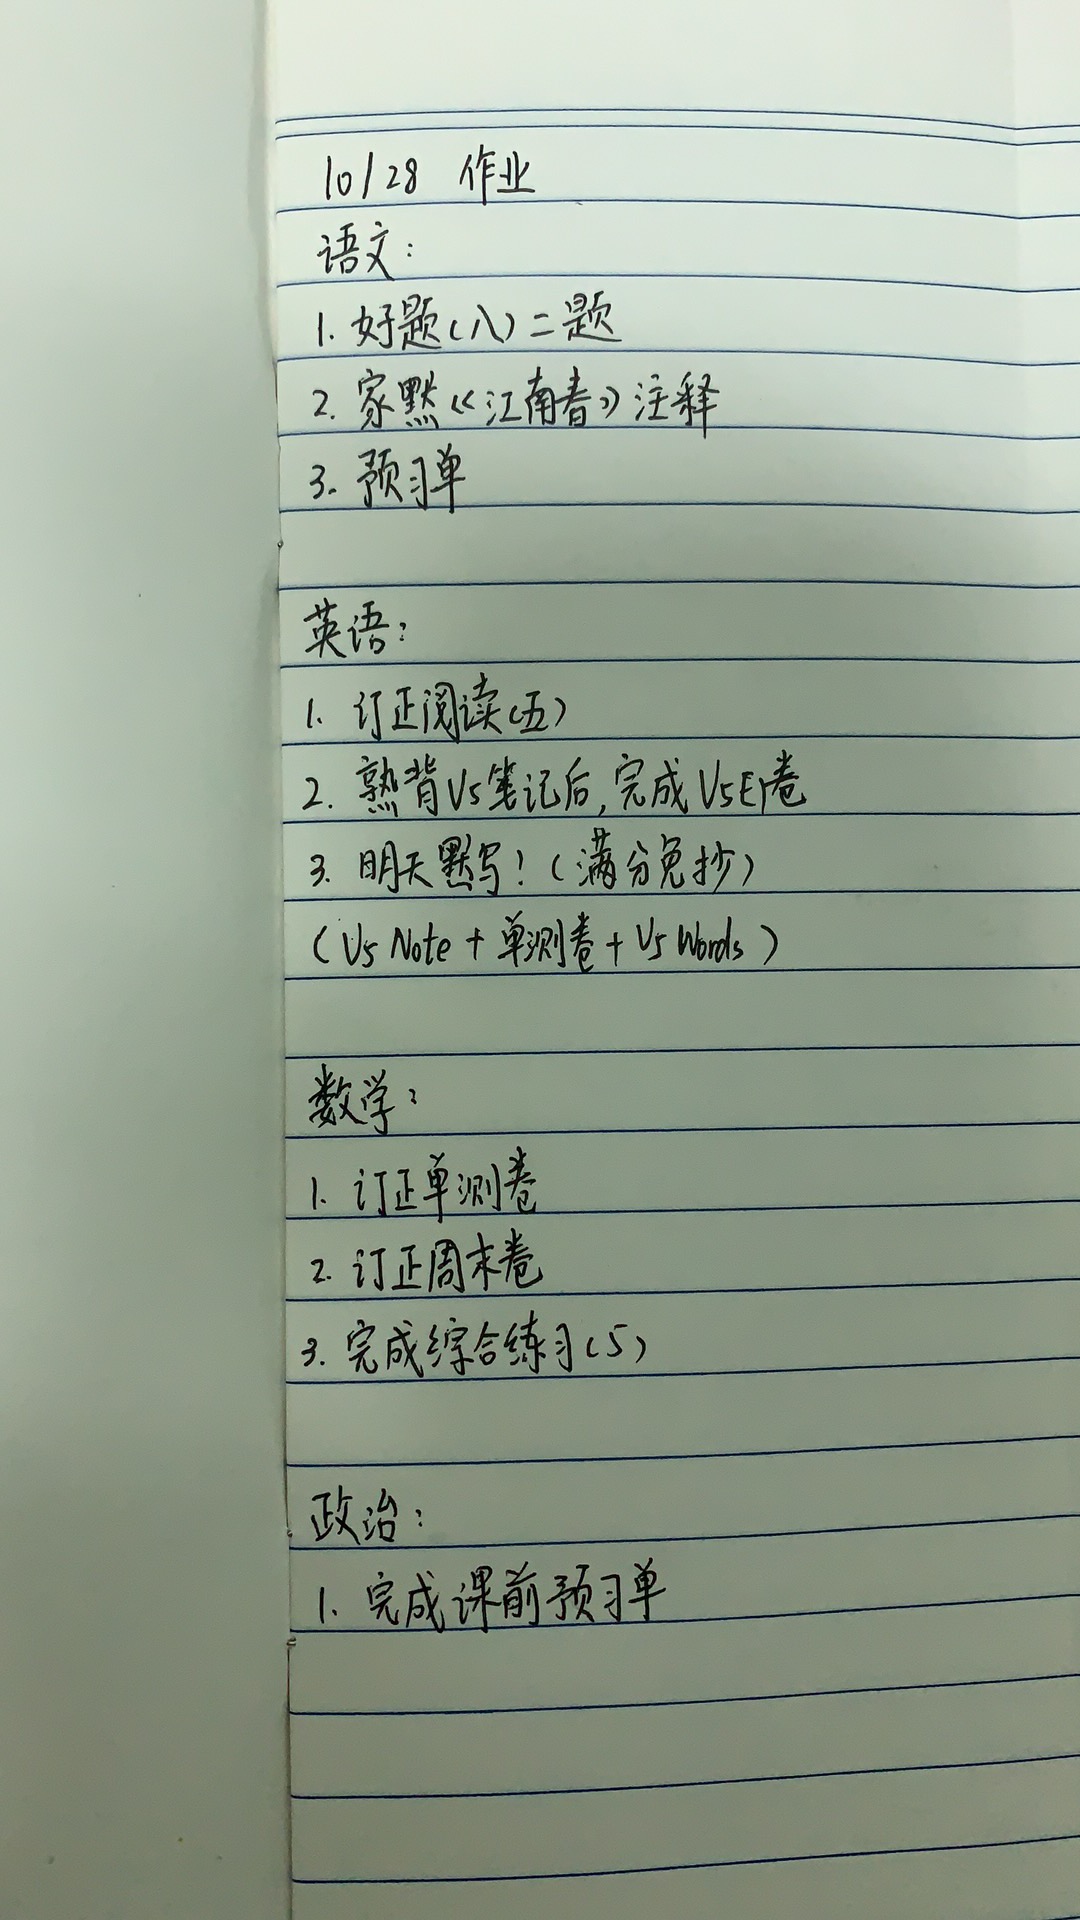 10/28 作业
语文:
1. 好题(八)二题
2. 家默《江南春》注释
3. 预习单
英语:
1. 订正阅读(五)
2. 熟背U5笔记后,完成U5E1卷
3. 明天默写!(满分免抄)
(U5 Note + 单测卷 + U5 Words)
数学:
1. 订正单测卷
2. 订正周末卷
3. 完成综合练习(5)
政治:
1. 完成课前预习单